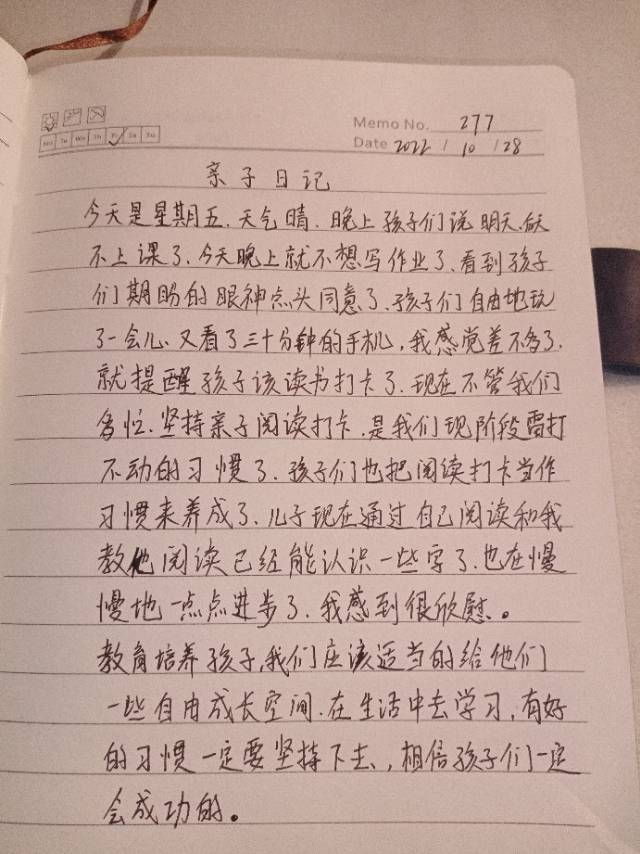 Memo No. 277
Mo Tu We Th Fr Sa Su
Date 2022 / 10 / 28
亲子日记
今天是星期五.天气晴.晚上孩子们说明天.后天
不上课了.今天晚上就不想写作业了.看到孩子
们期盼的眼神点头同意了.孩子们自由地玩
了一会儿.又看了三十分钟的手机,我感觉差不多了.
就提醒孩子该读书打卡了.现在不管我们
多忙.坚持亲子阅读打卡.是我们现阶段雷打
不动的习惯了.孩子们也把阅读打卡当作
习惯来养成了.儿子现在通过自己阅读和我
教他阅读已经能认识一些字了.也在慢
慢地一点点进步了.我感到很欣慰。
教育培养孩子,我们应该适当的给他们
一些自由成长空间.在生活中去学习,有好
的习惯一定要坚持下去,相信孩子们一定
会成功的。